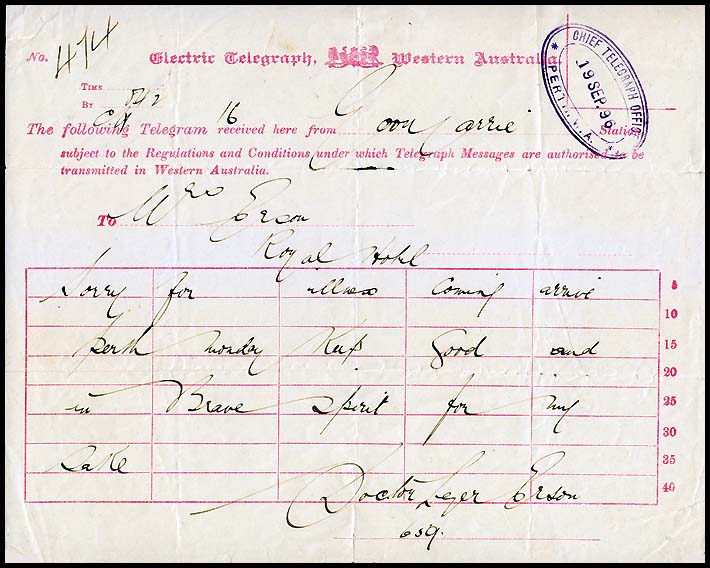 No. 474
Electric Telegraph, Western Australia.
CHIEF TELEGRAPH OFFICE
19 SEP. 96
* PERTH. W.A. *
TIME
BY
The following Telegram 16 received here from Goongarrie Station
subject to the Regulations and Conditions under which Telegraph Messages are authorised to be
transmitted in Western Australia.
To Mrs Erson
Royal Hotel
Sorry for illness coming arrive 5
10
Perth Monday Keep Good and 15
20
in Brave Spirit for my 25
30
Sake 35
40
Doctor Leger Erson